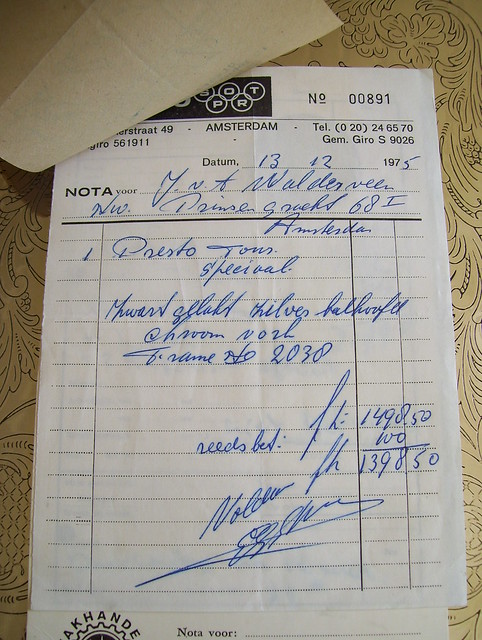 SOT
PR
No 00891
erstraat 49 - AMSTERDAM - Tel. (0 20) 24 65 70
giro 561911 - Gem. Giro S 9026
Datum, 13 12 1975
NOTA voor J. v. t Walderveen
Nw. Prinsengracht 68 I
Amsterdam
1 Presto Tour
speciaal.
Zwart gelakt zilver balhoofd
chroom vork
Frame No 2038
fl: 1498,50
reeds bet: 100
fl 1398,50
Voldaan
AKHANDE
Nota voor: